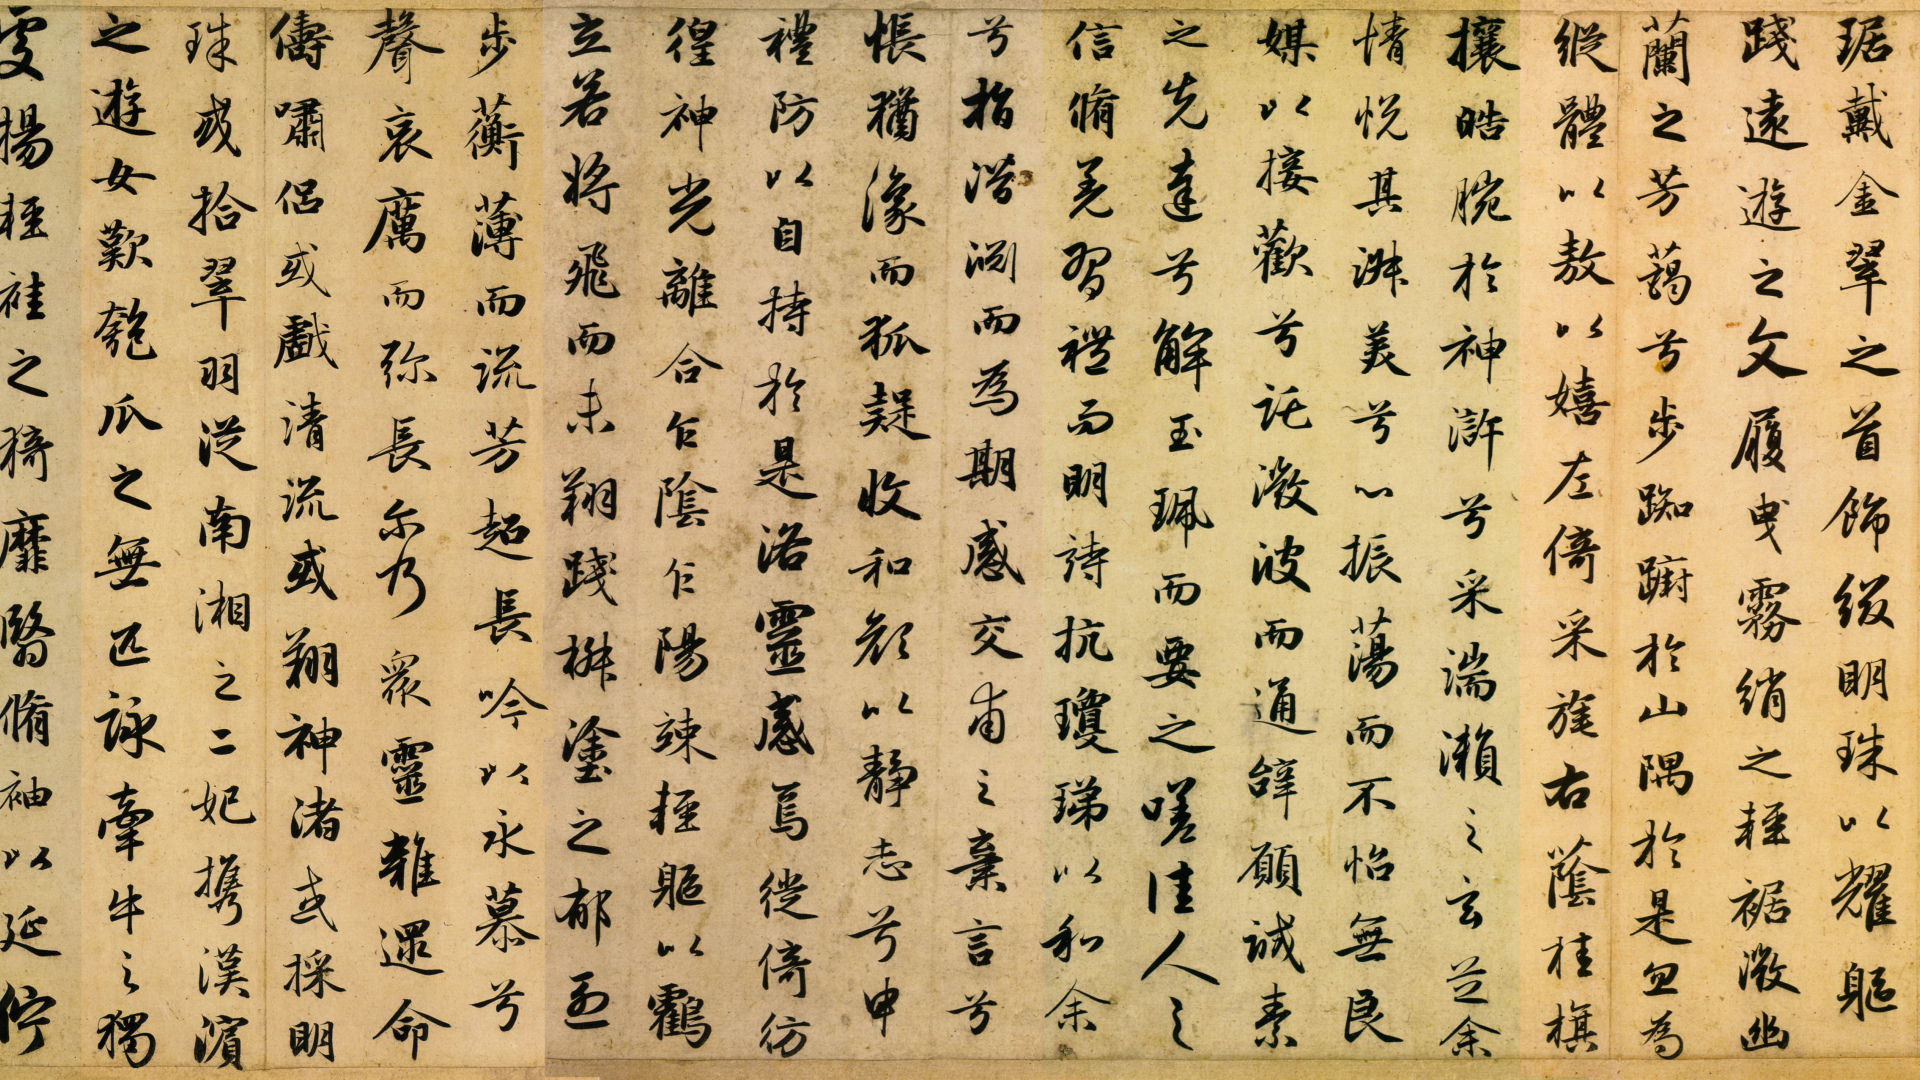 琚戴金翠之首飾綴明珠以耀軀
踐遠遊之文履曳霧綃之輕裾微幽
蘭之芳藹兮步踟躕於山隅於是忽焉
縱體以敖以嬉左倚采旄右蔭桂旗
攘皓腕於神滸兮采湍瀨之玄芝余
情悅其淋美兮心振蕩而不怡無良
媒以接歡兮託微波而通辭願誠素
之先達兮解玉珮而要之嗟佳人之
信脩羌習禮而明詩抗瓊珶以和余
兮指潛淵而為期感交甫之棄言兮
悵猶豫而狐疑收和顏以靜志兮申
禮防以自持於是洛靈感焉徙倚彷
徨神光離合乍陰乍陽竦輕軀以鶴
立若將飛而未翔踐椒塗之郁烈
步蘅薄而流芳超長吟以永慕兮
聲哀厲而弥長尔乃眾靈雜遝命
儔嘯侶或戲清流或翔神渚或採明
珠或拾翠羽從南湘之二妃攜漢濱
之遊女歎匏瓜之無匹詠牽牛之獨
處揚輕袿之猗靡翳脩袖以延佇